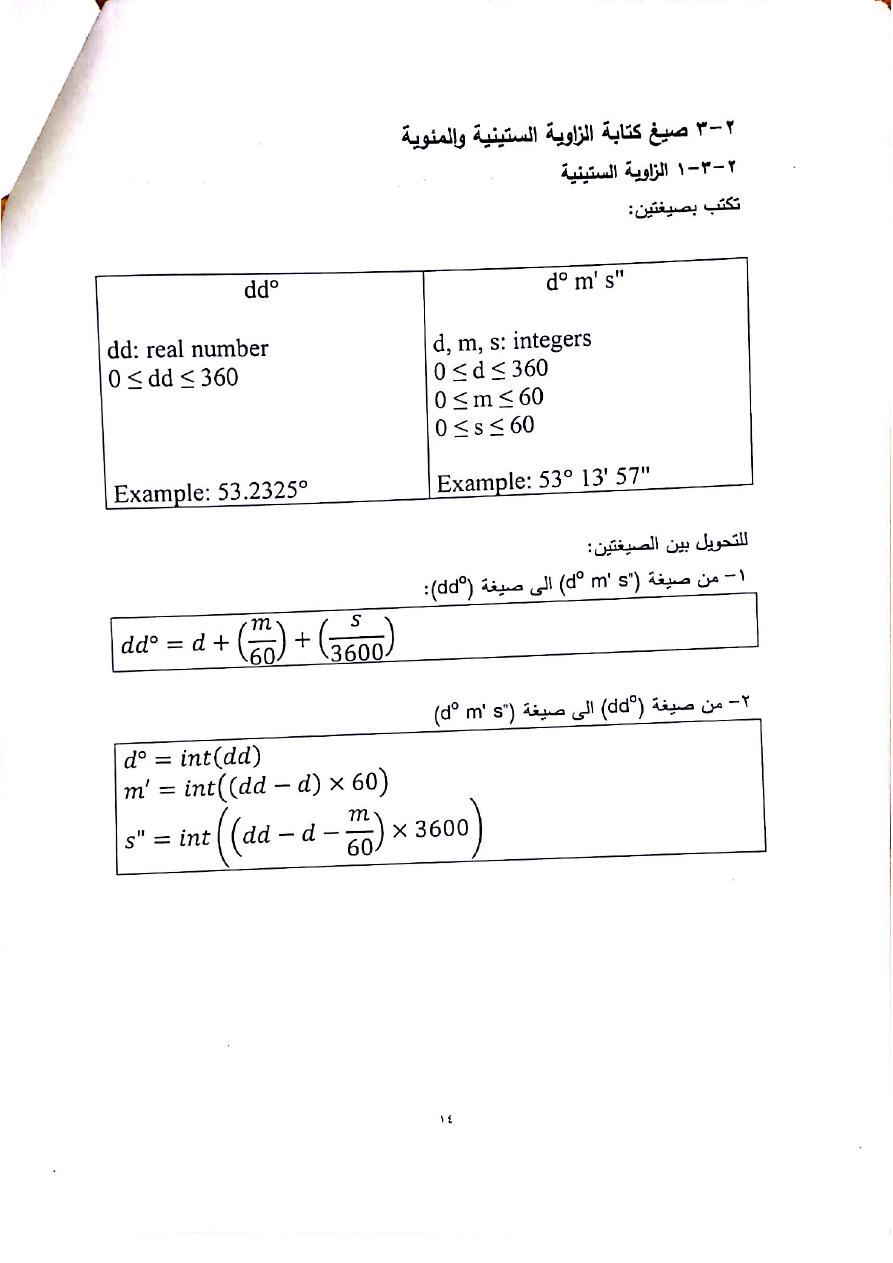 ٢-٣ صيغ كتابة الزاوية الستينية والمئوية
٢-٣-١ الزاوية الستينية
تكتب بصيغتين:
dd°
dd: real number
0 ≤ dd ≤ 360
Example: 53.2325°
d° m' s"
d, m, s: integers
0 ≤ d ≤ 360
0 ≤ m ≤ 60
0 ≤ s ≤ 60
Example: 53° 13' 57"
للتحويل بين الصيغتين:
١- من صيغة (d° m' s") الى صيغة (dd°):
dd° = d + (m/60) + (s/3600)
٢- من صيغة (dd°) الى صيغة (d° m' s")
d° = int(dd)
m' = int((dd − d) × 60)
s" = int((dd − d − m/60) × 3600)
١٤